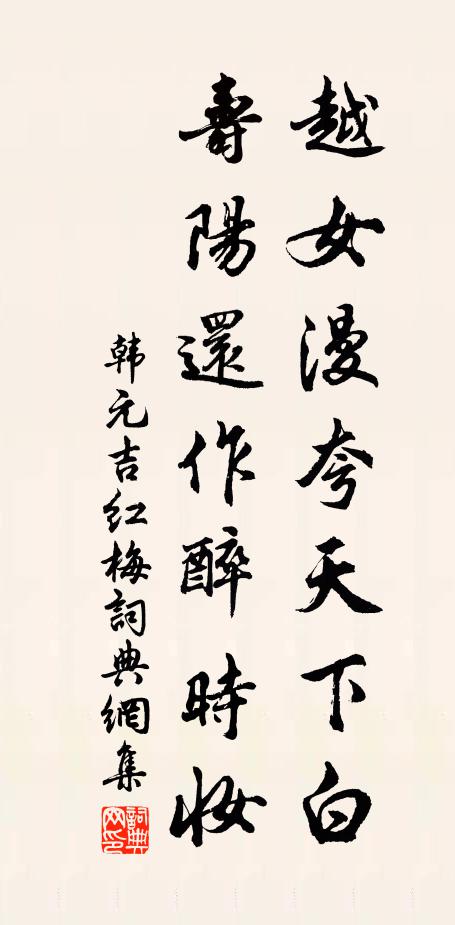 越女漫夸天下白
壽陽還作醉時妝
韩元吉红梅詞典網集
詞典網印